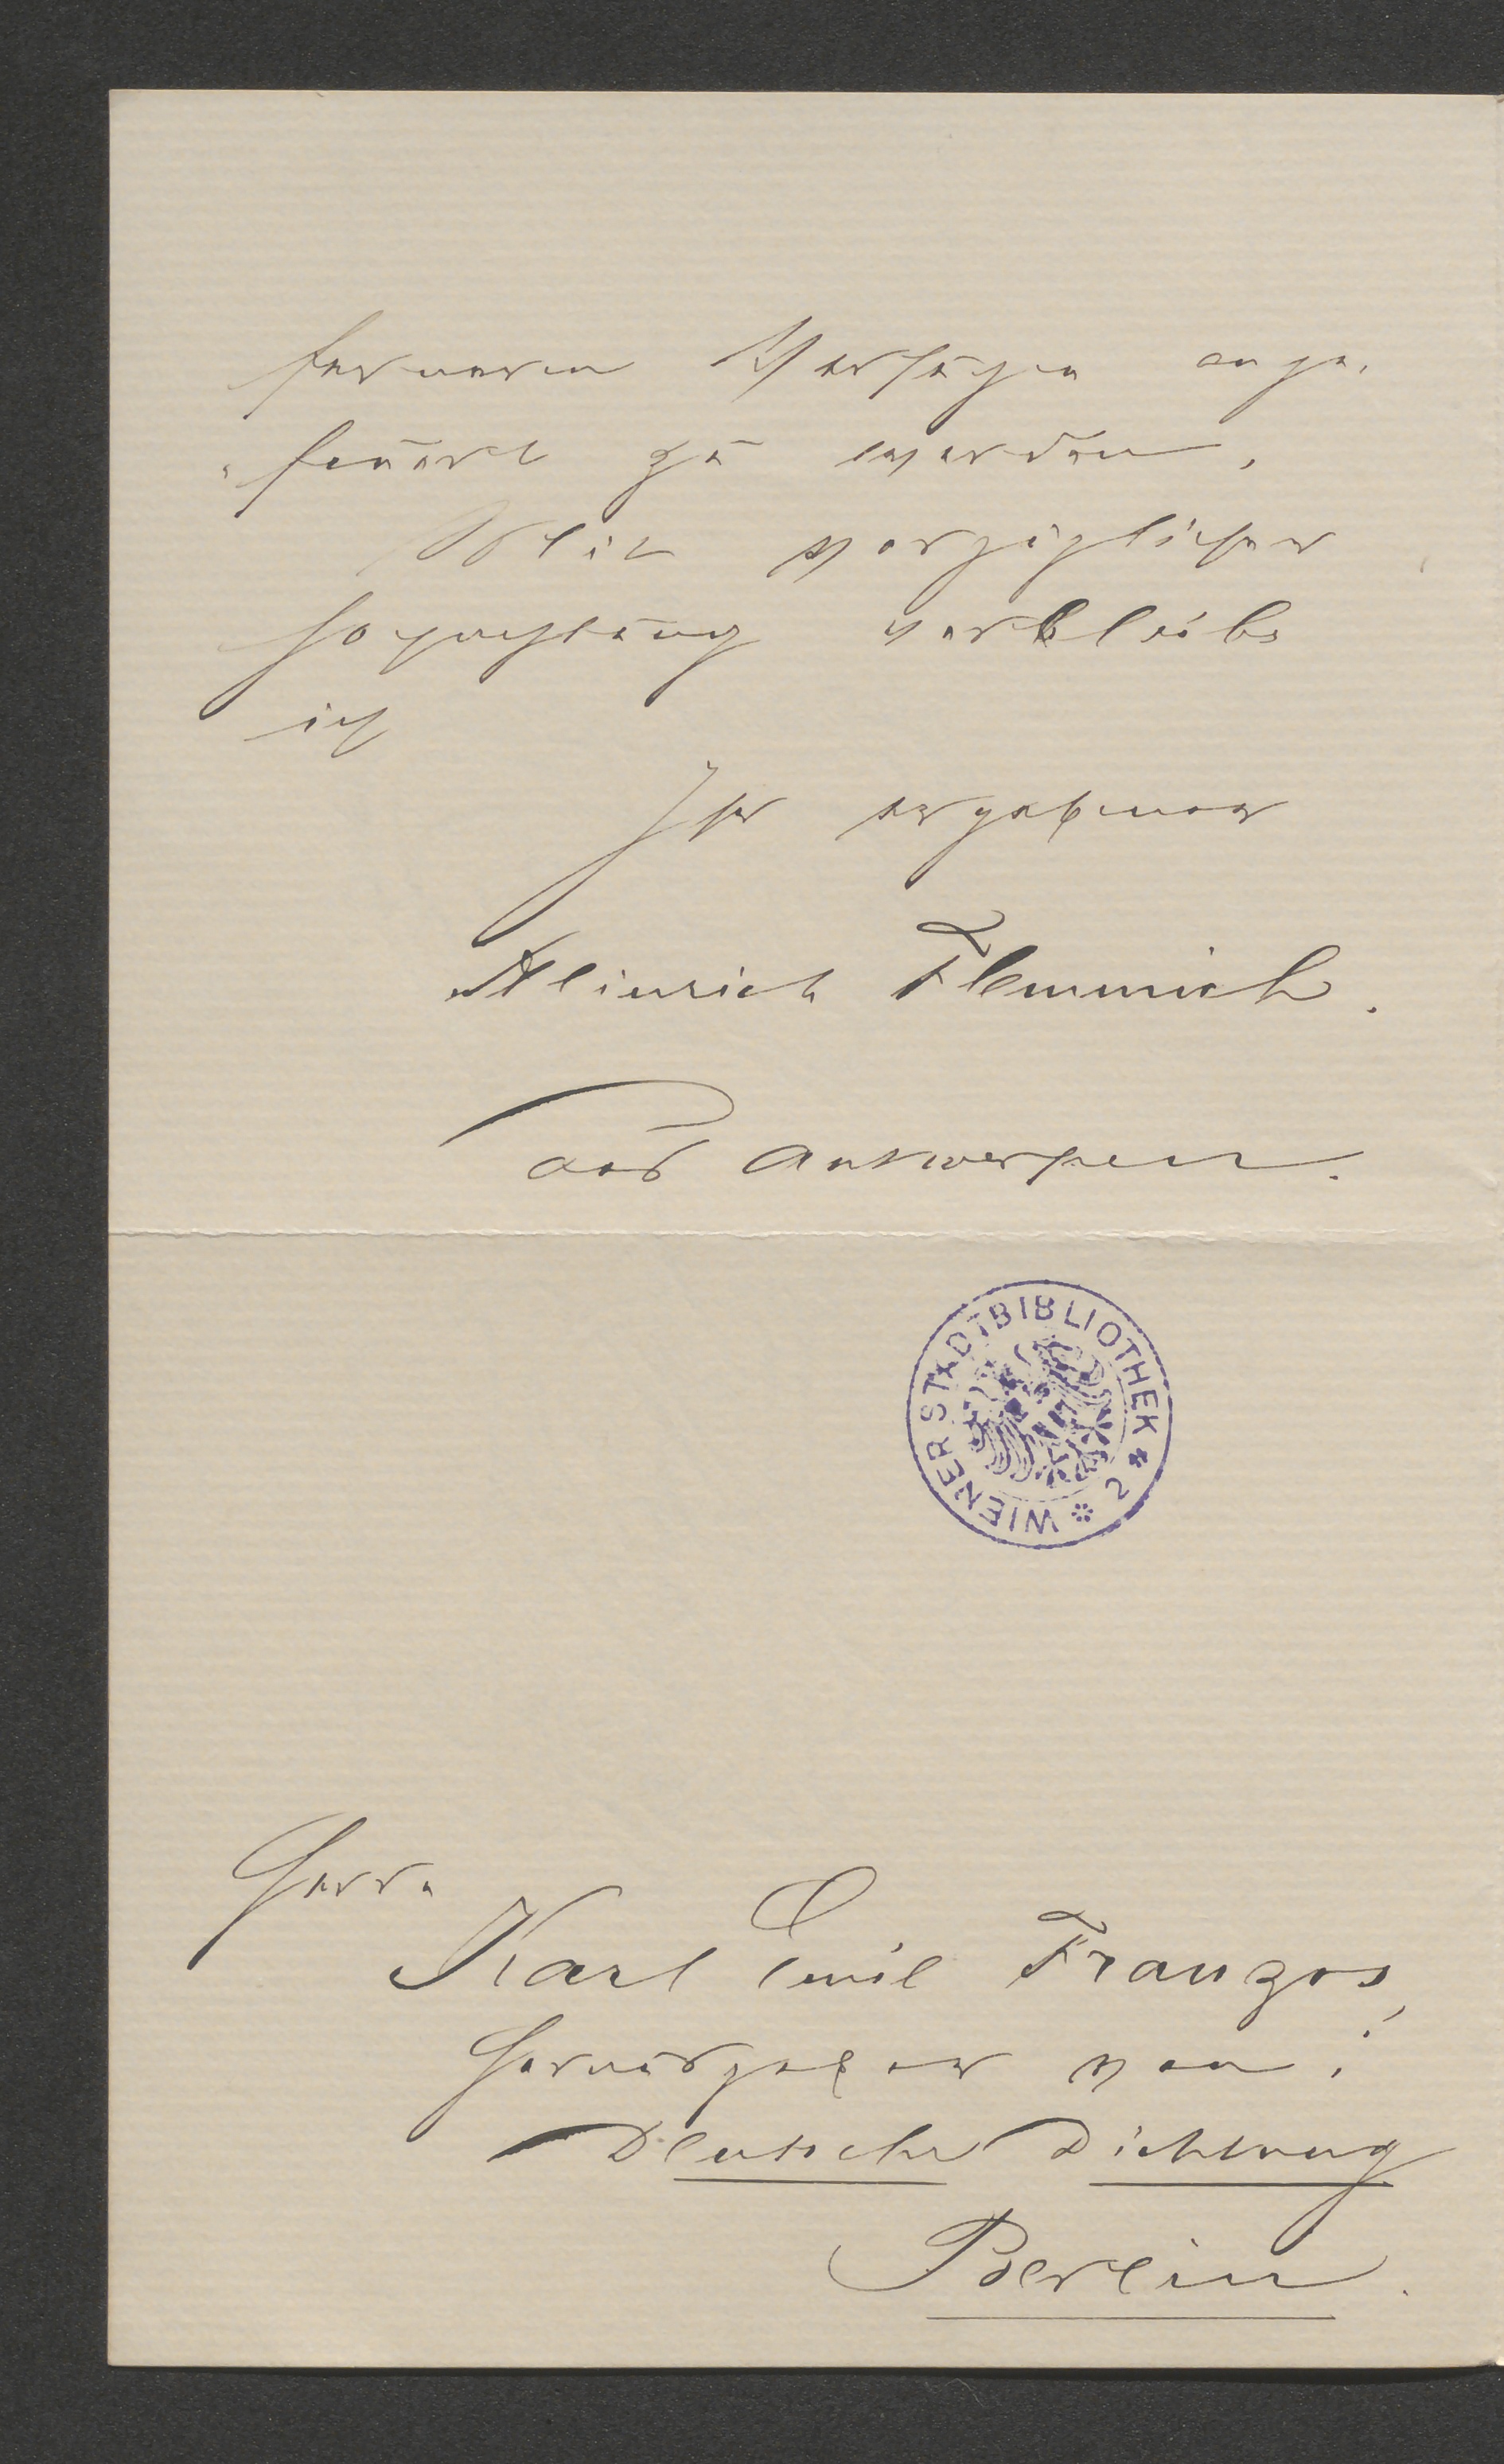 fernerem Versuchen ange-
feuert zu werden.
Mit vorzüglicher
Hochachtung verbleibe
ich
Ihr ergebener
Heinrich Flemmich.
aus Antwerpen.
WIENER STADTBIBLIOTHEK * 2 *
Herrn
Karl Emil Franzos,
Herausgeber von:
Deutsche Dichtung
Berlin.